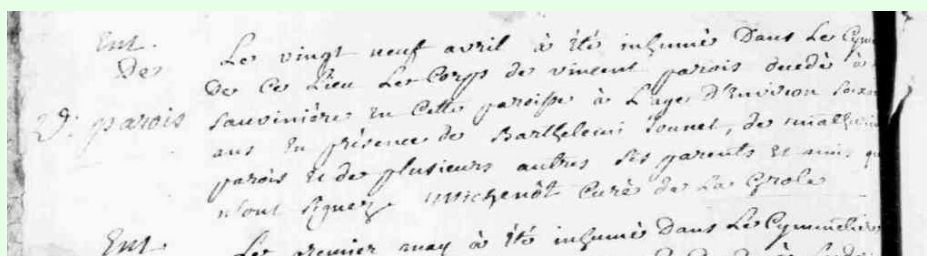 Ent. Le vingt neuf avril à été inhumé Dans Le Cyme
De De Ce Lieu Le Corps de vincent parois decedé à
V. parois sauvinière En Cette paroisse à L'age D'Environ soixan
ans En présence de Barthelemi Jounet, de mathurin
parois Et de plusieurs autres ses parents Et amis qu
n'ont signez Michenôt Curé de La Grole
Ent. Le premier may à été inhumé Dans Le Cymmetiere